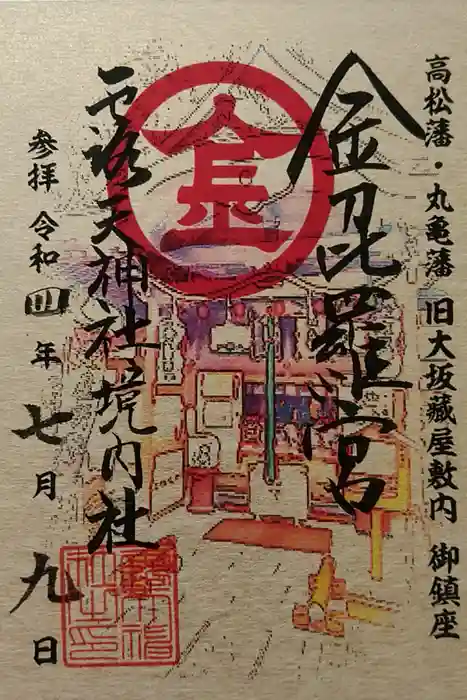 高松藩・丸亀藩 旧大坂蔵屋敷内 御鎮座
金毘羅宮
金
露天神社境内社
参拝 令和四年七月九日